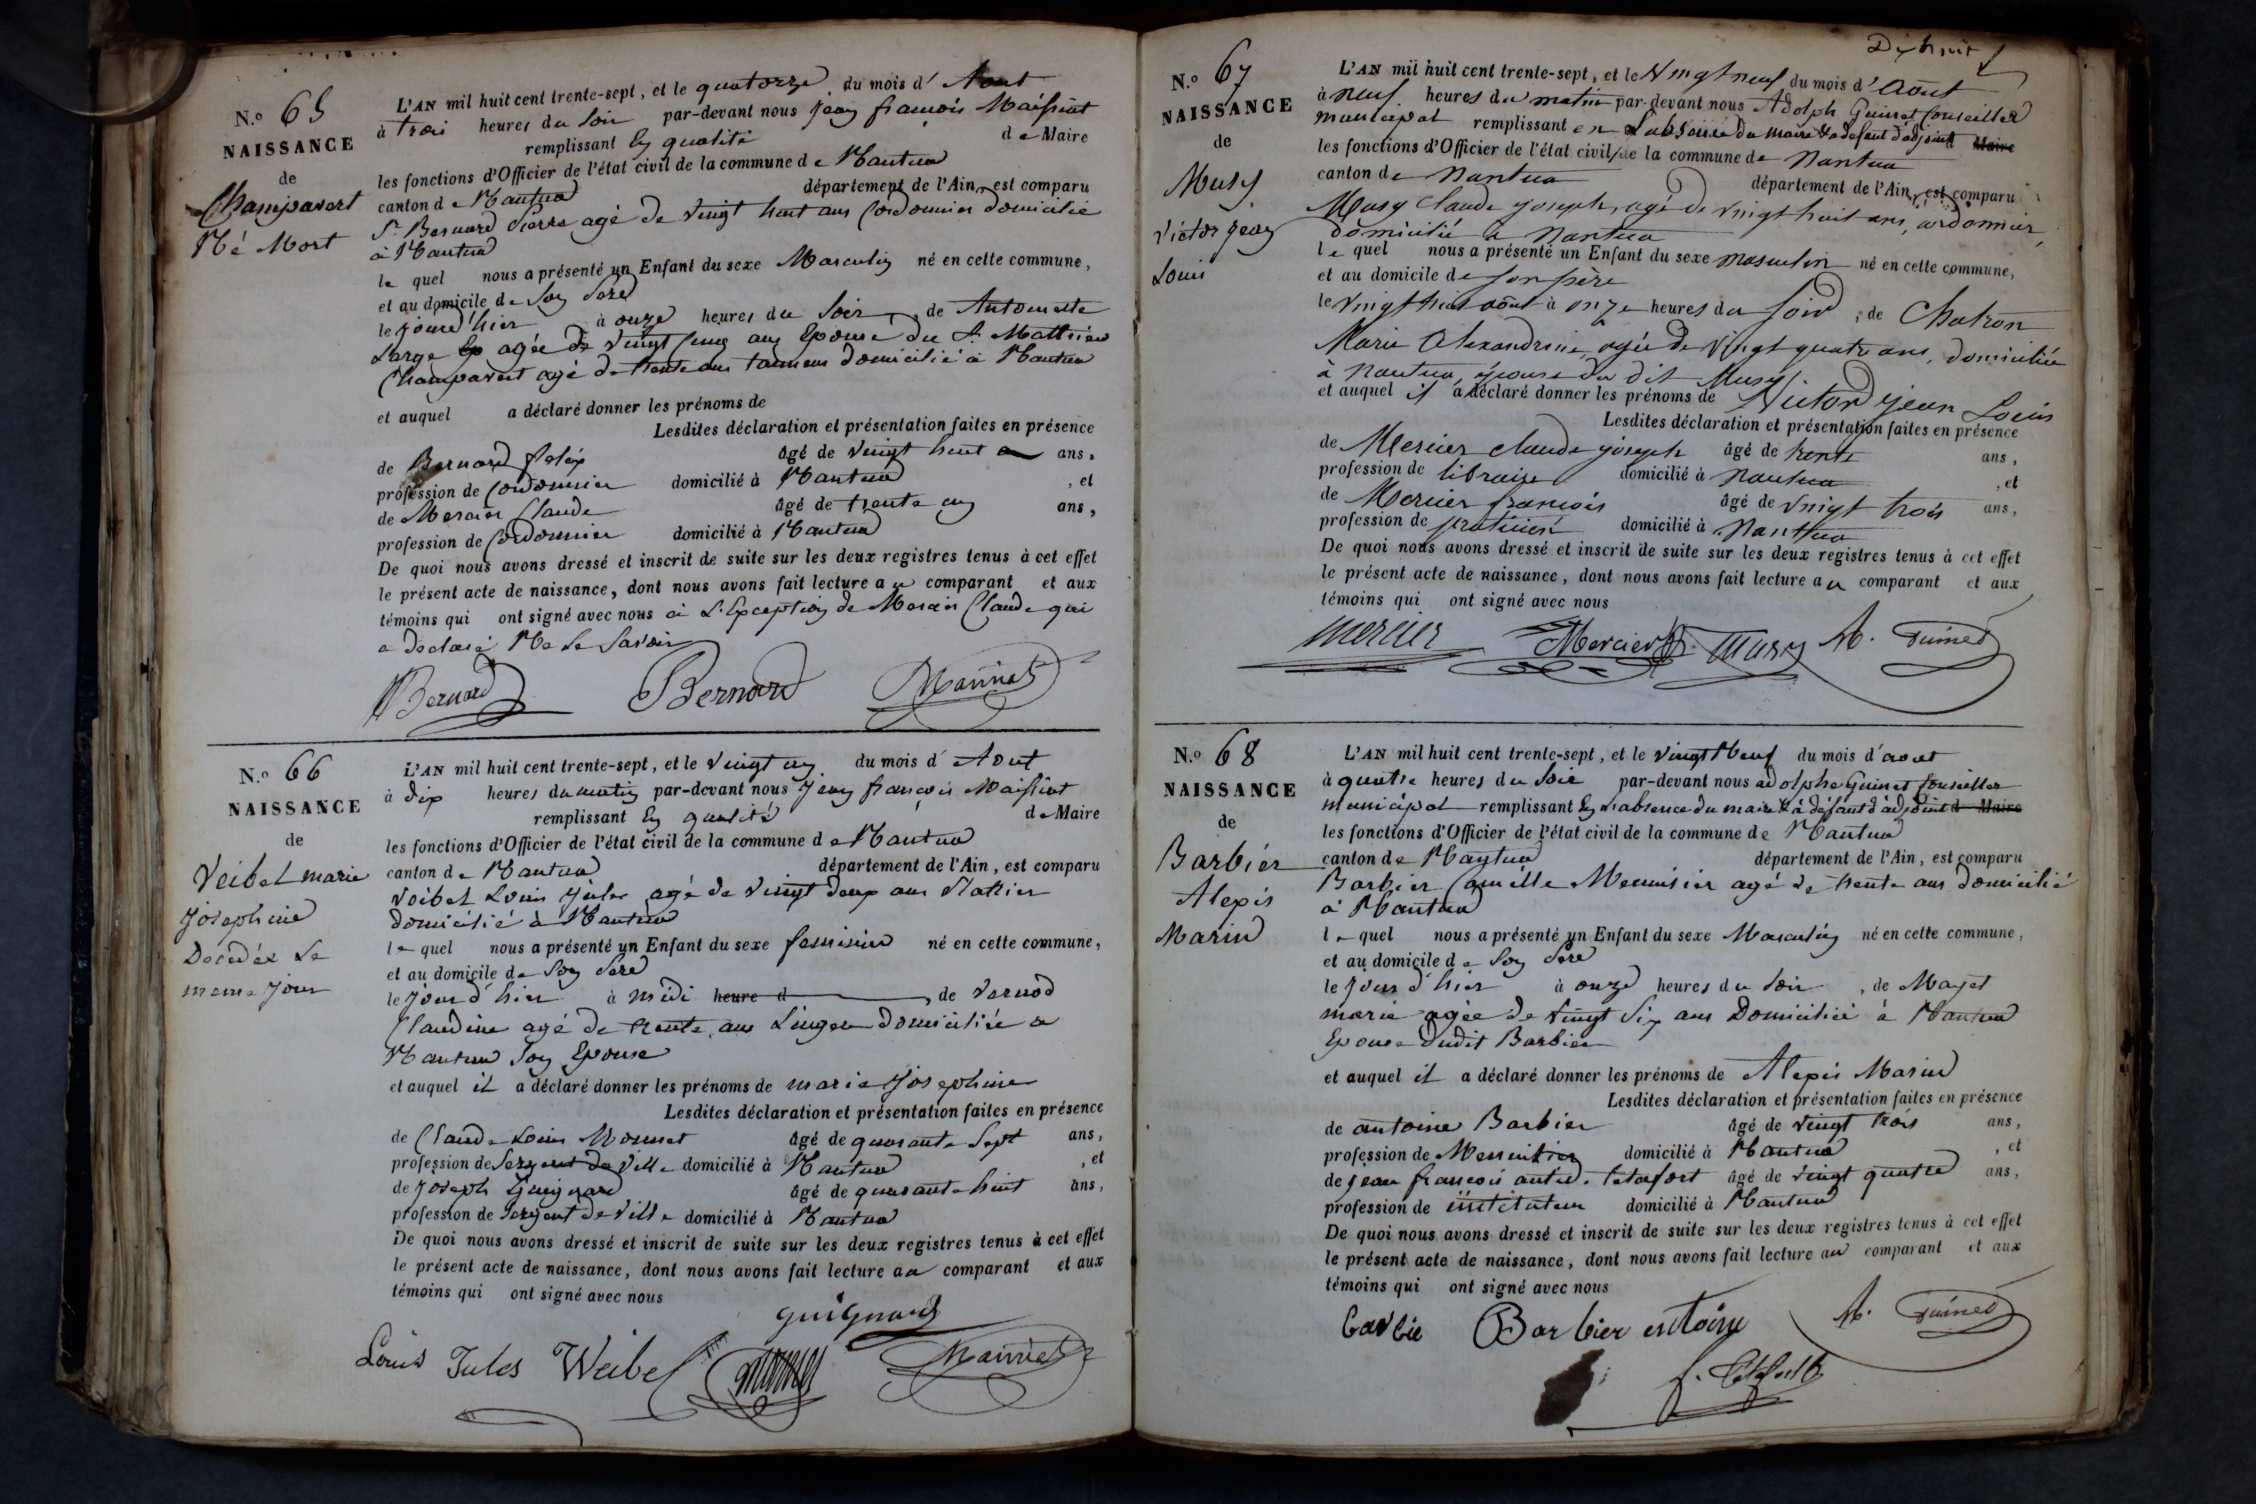 N.o 65
NAISSANCE
de
Champavert
Né Mort
L'AN mil huit cent trente-sept, et le quatorze du mois d'Aout
à trois heures du soir par-devant nous jean françois
remplissant en qualité de Maire
les fonctions d'Officier de l'état civil de la commune de Nantua
canton de Nantua département de l'Ain, est comparu
Sr. Bernard Pierre agé de vingt huit ans Cordonnier domicilié
à Nantua
le quel nous a présenté un Enfant du sexe Masculin né en cette commune,
et au domicile de son Pere
le jour d'hier à onze heures du soir, de Antoinette
Large agée de vingt ans Epouse du Sr. Mathieu
Champavert agé de trente ans tanneur domicilié à Nantua
et auquel a déclaré donner les prénoms de
Lesdites déclaration et présentation faites en présence
de Bernard felix âgé de vingt huit ans,
profession de Cordonnier domicilié à Nantua, et
de Mercier Claude âgé de trente un ans,
profession de Cordonnier domicilié à Nantua
De quoi nous avons dressé et inscrit de suite sur les deux registres tenus à cet effet
le présent acte de naissance, dont nous avons fait lecture au comparant et aux
témoins qui ont signé avec nous à L'Exception de Mercier Claude qui
a declaré Ne Le Savoir
Bernard Bernard
N.o 66
NAISSANCE
de
Veibel marie
josephine
Decedée Le
meme jour
L'AN mil huit cent trente-sept, et le vingt un du mois d'Aout
à dix heures du matin par-devant nous jean françois
remplissant en qualité de Maire
les fonctions d'Officier de l'état civil de la commune de Nantua
canton de Nantua département de l'Ain, est comparu
Veibel Louis jules agé de vingt deux ans
domicilié à Nantua
le quel nous a présenté un Enfant du sexe feminin né en cette commune,
et au domicile de son Pere
le jour d'hier à midi heure d, de Vernod
Claudine agé de trente ans Lingere domiciliée a
Nantua son Epouse
et auquel il a déclaré donner les prénoms de marie josephine
Lesdites déclaration et présentation faites en présence
de Claude Louis Monnet âgé de quarante sept ans,
profession de sergent de ville domicilié à Nantua, et
de joseph Guignard âgé de quarante huit ans,
profession de sergent de ville domicilié à Nantua
De quoi nous avons dressé et inscrit de suite sur les deux registres tenus à cet effet
le présent acte de naissance, dont nous avons fait lecture au comparant et aux
témoins qui ont signé avec nous
guignard
Louis Jules Weibel
Dix huit
N.o 67
NAISSANCE
de
Musy
Victor jean
Louis
L'AN mil huit cent trente-sept, et le vingt neuf du mois d'Août
à neuf heures du matin par-devant nous Adolph Guinet Conseiller
municipal remplissant en L'absence du maire & a defaut d'adjoint Maire
les fonctions d'Officier de l'état civil de la commune de Nantua
canton de Nantua département de l'Ain, est comparu
Musy Claude joseph, agé de vingt huit ans, cordonnier,
domicilié à Nantua
le quel nous a présenté un Enfant du sexe masculin né en cette commune,
et au domicile de son père
le vingt huit août à onze heures du soir, de Chatron
Marie Alexandrine, agée de vingt quatre ans, domiciliée
à Nantua, épouse du dit Musy
et auquel il a déclaré donner les prénoms de Victor jean Louis
Lesdites déclaration et présentation faites en présence
de Mercier claude joseph âgé de trente ans,
profession de libraire domicilié à Nantua, et
de Mercier françois âgé de vingt trois ans,
profession de praticien domicilié à Nantua
De quoi nous avons dressé et inscrit de suite sur les deux registres tenus à cet effet
le présent acte de naissance, dont nous avons fait lecture au comparant et aux
témoins qui ont signé avec nous
mercier Mercier Musy A. Guinet
N.o 68
NAISSANCE
de
Barbier
Alexis
Marin
L'AN mil huit cent trente-sept, et le vingt Neuf du mois d'aout
à quatre heures du soir par-devant nous adolphe Guinet Conseiller
municipal remplissant en L'absence du maire & à défaut d'adjoint d Maire
les fonctions d'Officier de l'état civil de la commune de Nantua
canton de Nantua département de l'Ain, est comparu
Barbier Camille Menuisier agé de trente ans domicilié
à Nantua
le quel nous a présenté un Enfant du sexe Masculin né en cette commune,
et au domicile de son Pere
le jour d'hier à onze heures du soir, de Mayet
marie agée de vingt six ans Domiciliée à Nantua
Epouse dudit Barbier
et auquel il a déclaré donner les prénoms de Alexis Marin
Lesdites déclaration et présentation faites en présence
de antoine Barbier âgé de vingt trois ans,
profession de Menuisier domicilié à Nantua, et
de jean françois âgé de vingt quatre ans,
profession de instituteur domicilié à Nantua
De quoi nous avons dressé et inscrit de suite sur les deux registres tenus à cet effet
le présent acte de naissance, dont nous avons fait lecture au comparant et aux
témoins qui ont signé avec nous
Barbier A. Guinet